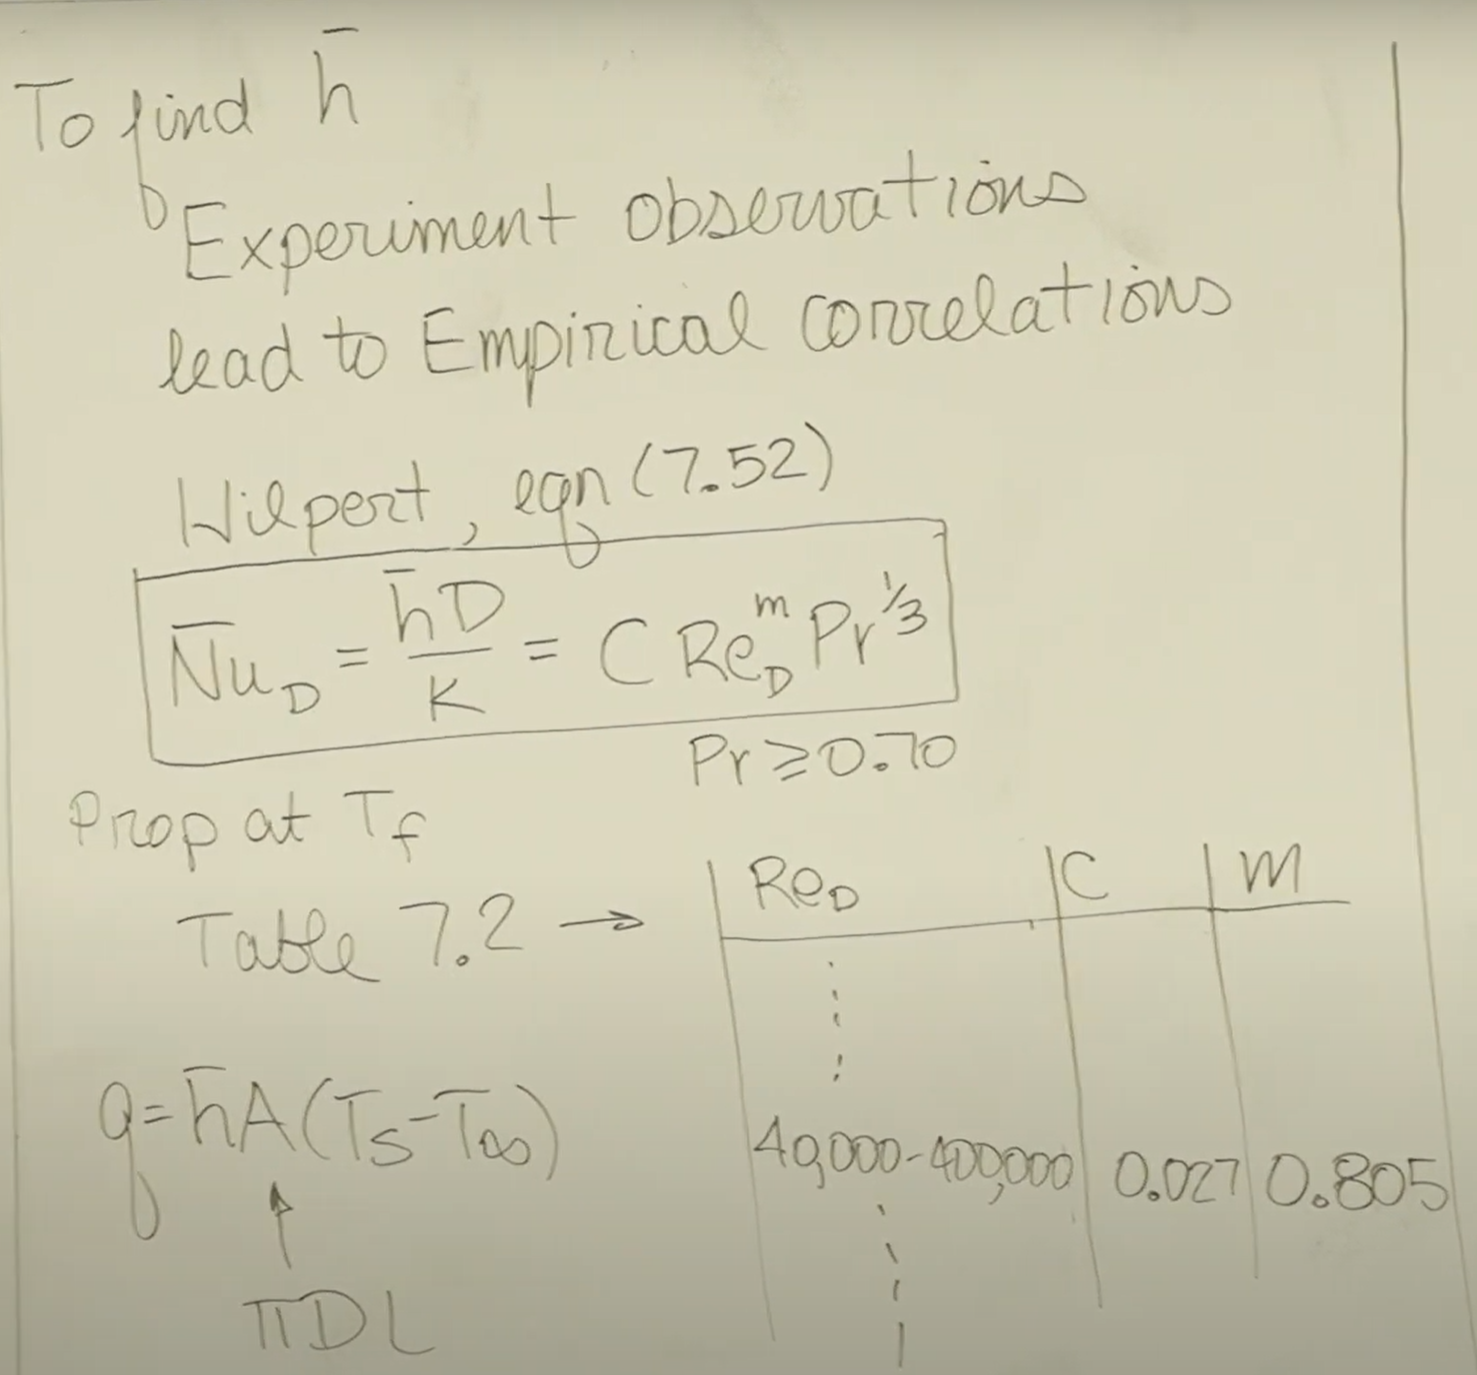 To find h̄
Experiment observations
lead to Empirical correlations
Hilpert, eqn (7.52)
N̄u_D = h̄D/K = C Re_D^m Pr^1/3
Pr ≥ 0.70
Prop at T_f
Table 7.2 →
Re_D | C | m
40,000-400,000 | 0.027 | 0.805
q = h̄A(T_s - T_∞)
↑
πDL